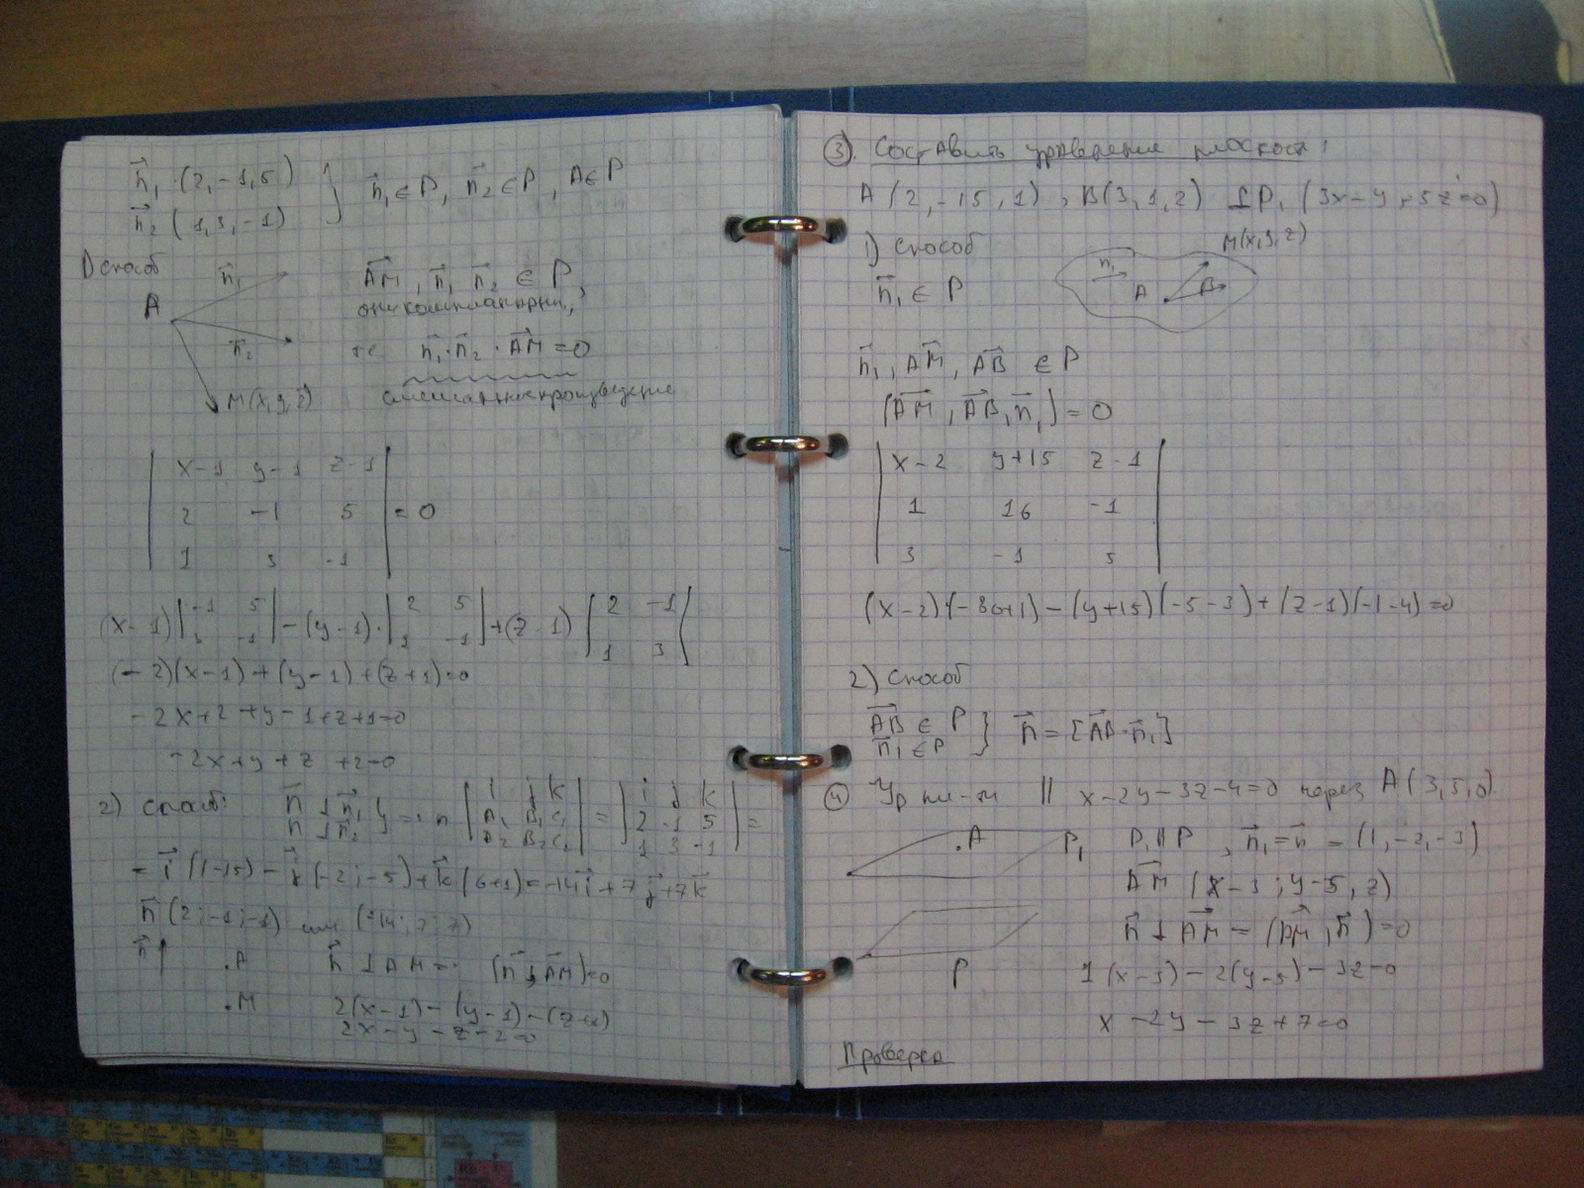 n₁ (2,-1,5)
n₂ (1,3,-1)
n₁ ∈ P, n₂ ∈ P, A ∈ P
1) способ
n₁
A
n₂
M(x,y,z)
AM, n₁ n₂ ∈ P,
они компланарны,
те n₁·n₂·AM = 0
смешанное произведение
x-1 y-1 z-1
2 -1 5 = 0
1 3 -1
(x-1) |-1 5| - (y-1)· |2 5| + (z-1) |2 -1|
3 -1 1 -1 1 3
(-2)(x-1) + (y-1) + (z+1) = 0
-2x+2+y-1+z+1=0
-2x+y+z+2=0
2) способ:
n ⊥ n₁
n ⊥ n₂
=> n
i j k
A₁ B₁ C₁
A₂ B₂ C₂
=
i j k
2 -1 5
1 3 -1
=
= i (1-15) - j (-2-5) + k (6+1) = -14i + 7j + 7k
n (2;-1;-1) или (-14; 7; 7)
n
.A
.M
n ⊥ AM = (n, AM)=0
2(x-1) - (y-1) - (z+1)
2x - y - z - 2 = 0
3). Составить уравнение плоскости:
A (2,-15,1), B(3,1,2) ⊥ P₁ (3x-y-5z=0)
1) способ
n₁ ∈ P
n₁
A
B
M(x,y,z)
n₁, AM, AB ∈ P
(AM, AB, n₁) = 0
x-2 y+15 z-1
1 16 -1
3 -1 5
(x-2)(-80+1) - (y+15)(-5-3) + (z-1)(-1-4) = 0
2) способ
AB ∈ P
n₁ ∈ P
n = [AB·n₁]
4) Ур пл-ти || x-2y-3z-4=0 через A(3,5,0).
.A
P₁
P
P₁ || P, n₁ = n = (1,-2,-3)
AM (x-3; y-5, z)
n ⊥ AM = (AM, n) = 0
1(x-3) - 2(y-5) - 3z = 0
x - 2y - 3z + 7 = 0
Проверка